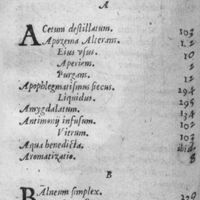 A
ACetum destillatum. 103
Apozema Alterans. 12
Eius vsus. 10
Aperiens. 2
Purgans. 12
Apophlegmatismus siccus. 294
Liquidus. 295
Amygdalatum. 134
Antimonij infusum. 102
Vitrum. 107
Aqua benedicta. ibid.
Aromatizatio. 8
B
BAlneum simplex. 270